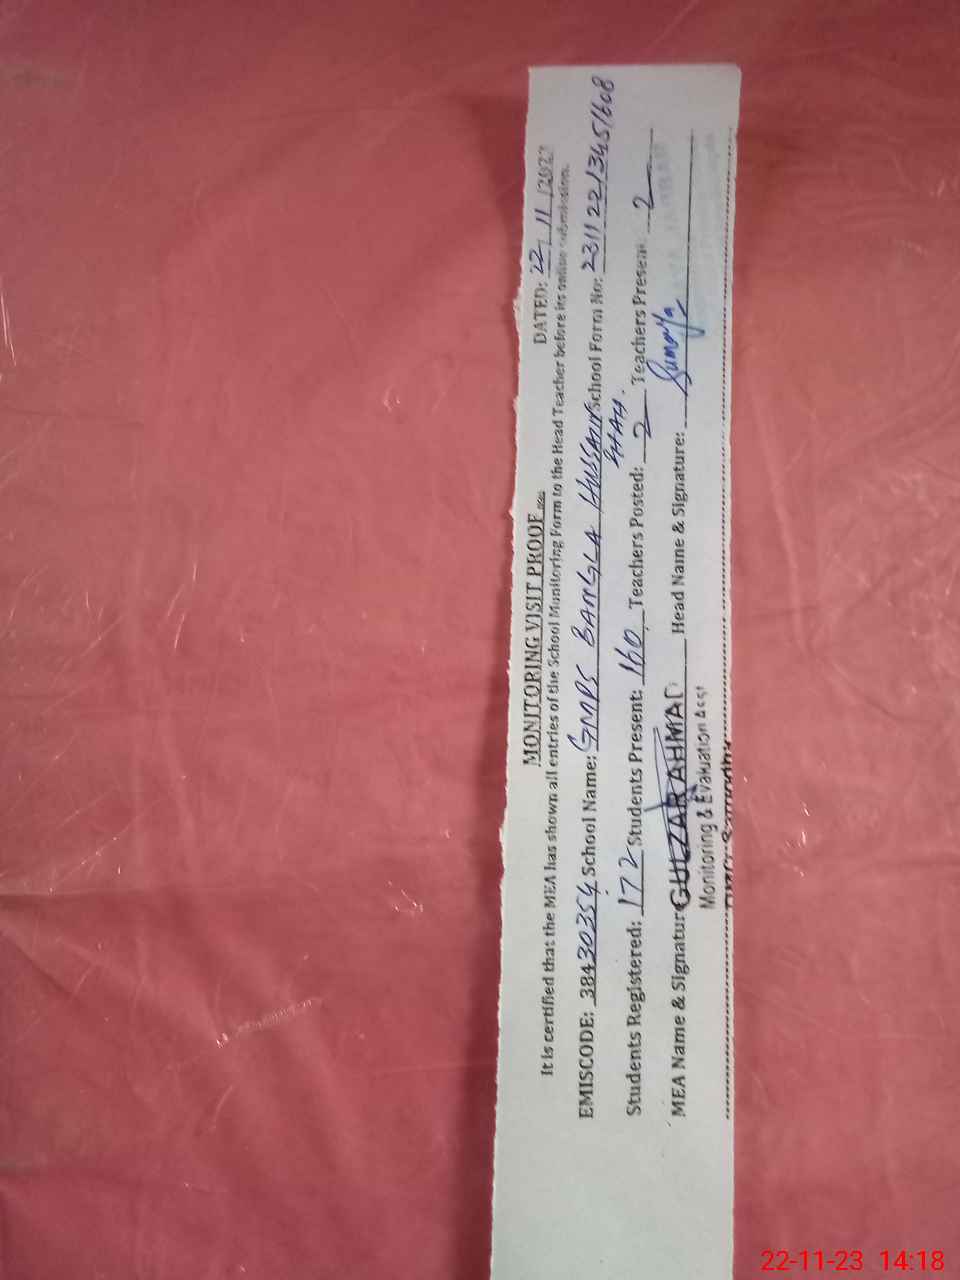 MONITORING VISIT PROOF DATED: 22/11/2023
It is certified that the MEA has shown all entries of the School Monitoring Form to the Head Teacher before its online submission.
EMISCODE: 38430354 School Name: GMPS BANGLA HUSSAIN SHAH. School Form No: 23112213451608
Students Registered: 172 Students Present: 160 Teachers Posted: 2 Teachers Present: 2
MEA Name & Signature GULZAR AHMAD Head Name & Signature: Sumayya
Monitoring & Evaluation Asst
22-11-23 14:18